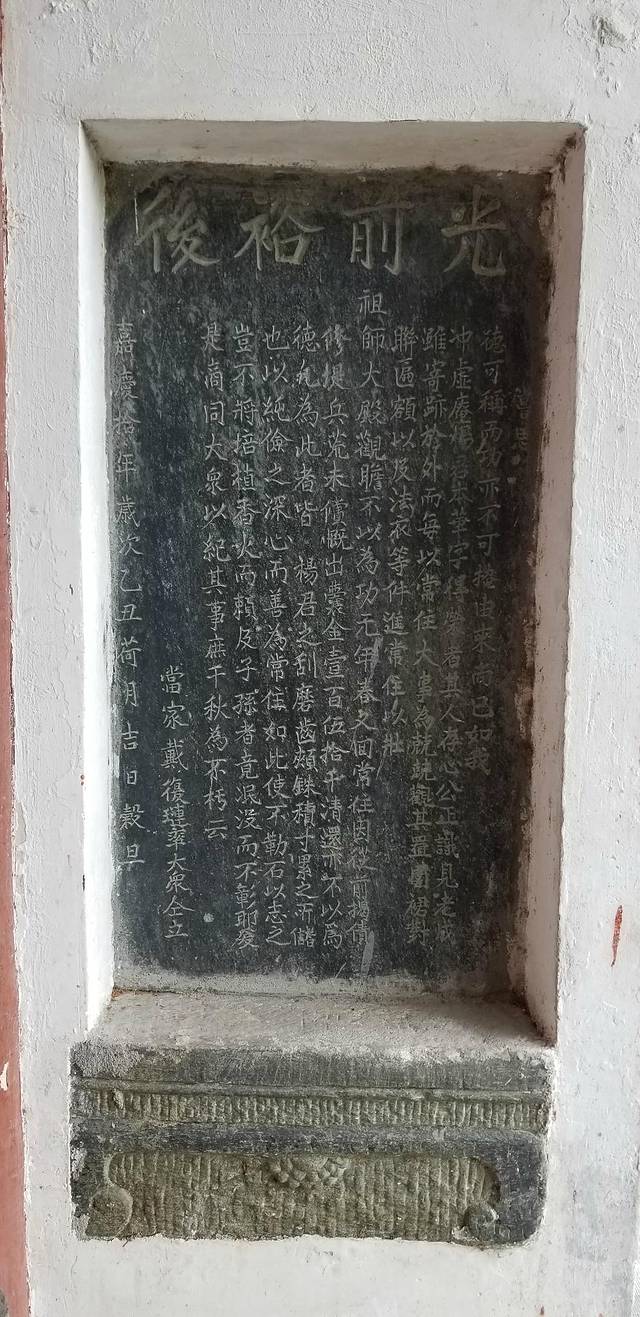 光前裕後
嘗思
德可稱而功亦不可掩由來尚已如我
冲虛庵楊君本華字得榮者其人存心公正識見老成
雖寄跡於外而每以常住大事為兢兢觀其置圍裙對
聯匾額以及法衣等件進常住以壯
祖師大殿觀瞻不以為功元年春又值常住因從前揭債
修堤兵荒未償慨出囊金壹百伍拾千清還亦不以為
德凡為此者皆 楊君之刮磨齒頰銖積寸累之所儲
也以純儉之深心而善為常住如此使不勒石以志之
豈不將培植香火而賴及子孫者竟泯没而不彰耶爰
是商同大衆以紀其事庶千秋為不朽云
當家戴復璉率大衆仝立
嘉慶拾年歲次乙丑荷月吉日穀旦